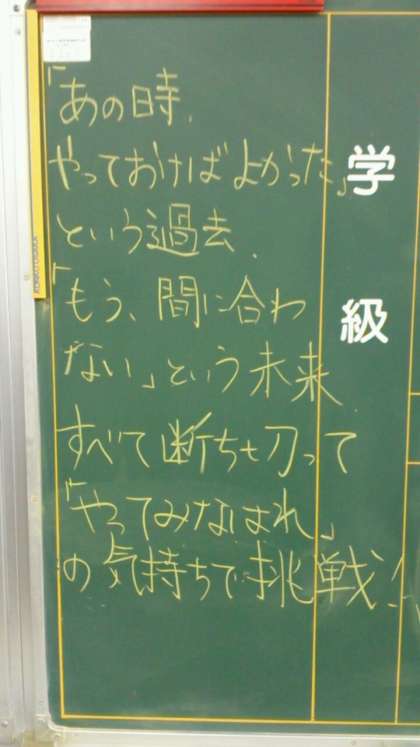 「あの時、
やっておけばよかった」
という過去、
「もう、間に合わ
ない」という未来
すべて断ち切って
「やってみなはれ」
の気持ちで挑戦!
学級